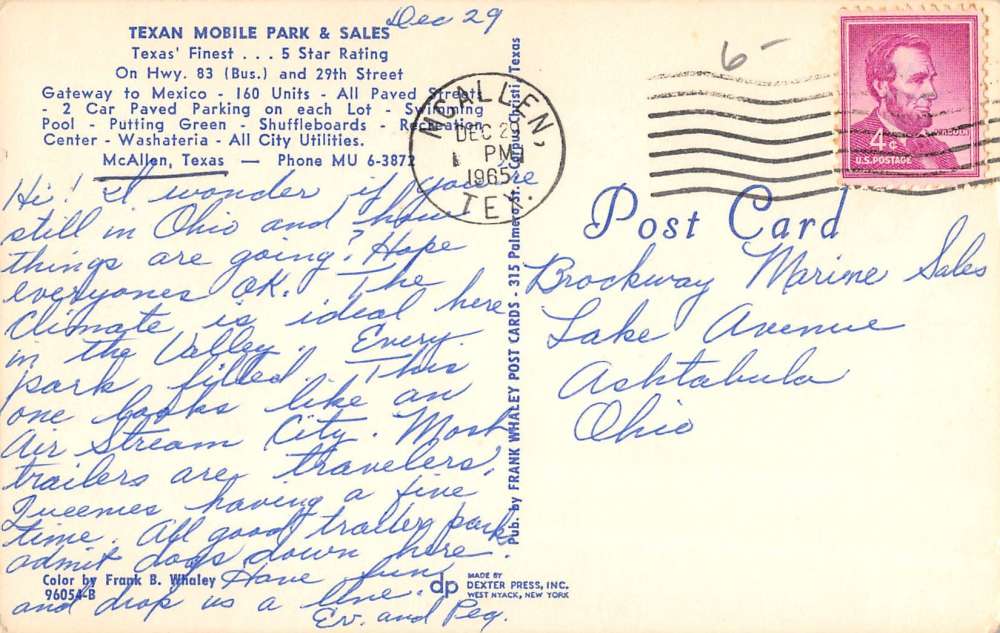 Dec 29
TEXAN MOBILE PARK & SALES
Texas' Finest . . . 5 Star Rating
On Hwy. 83 (Bus.) and 29th Street
Gateway to Mexico - 160 Units - All Paved Streets
- 2 Car Paved Parking on each Lot - Swimming
Pool - Putting Green - Shuffleboards - Recreation
Center - Washateria - All City Utilities.
McAllen, Texas — Phone MU 6-3872
Hi! I wonder if you're
still in Ohio and how
things are going? Hope
everyones OK. The
Climate is ideal here
in the Valley. Every
park filled. This
one looks like an
Air Stream City. Most
trailers are travelers.
having a fine
time. All good trailer parks
admit dogs down here.
Have fun
and drop us a line.
Ev. and Peg.
Color by Frank B. Whaley
96054-B
Pub. by FRANK WHALEY POST CARDS - 315 Palmero St. - Corpus Christi, Texas
dp
MADE BY
DEXTER PRESS, INC.
WEST NYACK, NEW YORK
MCALLEN,
DEC 29
PM
1965
TEX.
6-
LINCOLN
4¢
U.S. POSTAGE
Post Card
Brockway Marine Sales
Lake Avenue
Ashtabula
Ohio